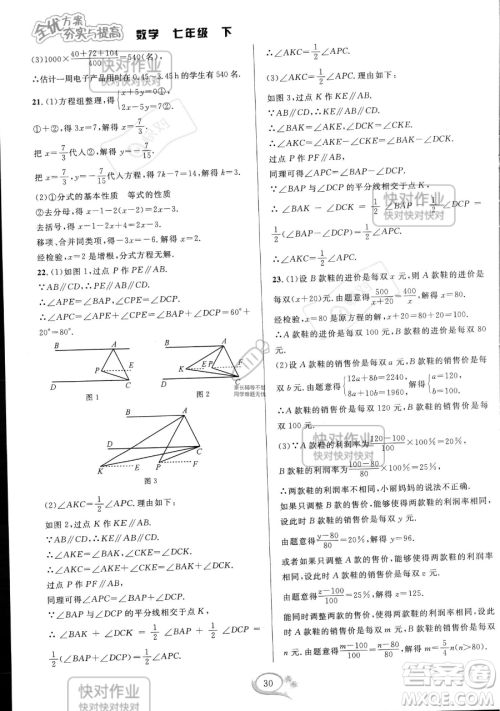 全优方案
夯实与提高
数学 七年级 下
(3)1000×(40+72+104)/400=540(名).
∴估计一周电子产品用时在 0.45~3.45 h的学生有 540 名.
21.(1)方程组整理,得{x+5y=0① 2x-5y=7②
①+②,得 3x=7,解得 x=7/3.
把 x=7/3代入①,得 y=-7/15.
把 x=7/3,y=-7/15代入方程,得 7k-7=14,解得 k=3.
(2)①分式的基本性质 等式的性质
②去分母,得 x-1+2(x-2)=-1.
去括号,得
移项、合并同类项,得
经检验,x=2是增根,分式方程无解.
22.(1)如图 1,过点 P 作 PE∥AB.
∵AB∥CD,
∴PE∥AB∥CD.
∴∠APE=∠BAP,∠CPE=∠DCP.
∴∠APC=∠APE+∠CPE=∠BAP+∠DCP=60°+
20°=80°.
A P E C D
图 1
图 2
A B C D P F K E
图 3
(2)∠AKC=1/2∠APC.
如图 2,过点 K 作 KE∥AB.
∵AB∥CD,
∴KE∥AB∥CD.
∴∠AKE=∠BAK,∠CKE=∠DCK.
∴∠AKC=∠AKE+∠CKE=∠BAK+∠DCK.
过点 P 作 PF∥AB.
同理可得,∠APC=∠BAP+∠DCP.
∵∠BAP 与∠DCP 的平分线相交于点 K,
∴∠BAK+∠DCK=1/2∠BAP+1/2∠DCP=
1/2(∠BAP+∠DCP)=1/2∠APC.
∴∠AKC=1/2∠APC.
(3)∠AKC=1/2∠APC.理由如下:
如图 3,过点 K 作 KE∥AB.
∵AB∥CD,∴KE∥AB∥CD.
∴∠BAK=∠AKE,∠DCK=∠CKE.
∴∠AKC=∠AKE-∠CKE=∠BAK-∠DCK.
过点 P 作 PF∥AB.
同理可得,∠APC=∠BAP-∠DCP.
∵∠BAP 与∠DCP 的平分线相交于点 K,
∴∠BAK-∠DCK=1/2∠BAP-1/2∠DCP=
1/2(∠BAP-∠DCP)=1/2∠APC.
∴∠AKC=1/2∠APC.
23.(1)设 B 款鞋的进价是每双 x 元,则 A 款鞋的进价是
每双(x+20)元.由题意得500/(x+20)=400/x,解得 x=80.
经检验,x=80 是原方程的解.
∴x+20=100.
∴A 款鞋的进价是每双 100 元,B 款鞋的进价是每双
80 元.
(2)设 A 款鞋的销售价是每双 a 元,B 款鞋的销售价是
每双 b 元.由题意得{12a+8b=2240 8a+10b=1960,解得{a=120 b=100.
∴A 款鞋的销售价是每双 120 元,B 款鞋的销售价是每双
100 元.
(3)∵A 款鞋的利润率为(120-100)/100×100%=20%,B
款鞋的利润率为(100-80)/80×100%=25%,
∴两款鞋的利润率不相同,小丽妈妈的说法不正确.
如果只调整 B 款的售价,能够使得两款鞋的利润率相
同,设此时 B 款鞋的销售价是每双 y 元.
由题意得(y-80)/80=20%,解得 y=96.
如果只调整 A 款的售价,能够使得两款鞋的利润率相
同,设此时 A 款鞋的销售价是每双 z 元.
由题意得(z-100)/100=25%,解得 z=125.
能同时调整两款的售价,使得两款鞋的利润率相同,
此时设 A 款鞋的销售价是每双 m 元,B 款鞋的销售价
是每双 n 元.
由题意得(m-100)/100=(n-80)/80,解得 m=5/4n(n>80).
30
快对作业
快对快对快对
答案圈